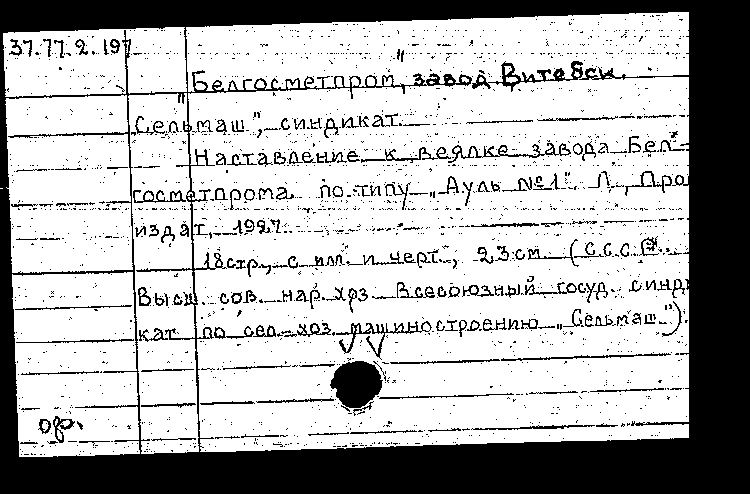 37.77.2.197
"Белгосметпром", завод Витебск.
"Сельмаш", синдикат
Наставление к веялке завода Бел-
госметпрома по типу „Ауль №1". Л., Про
издат, 1927.
18стр., с илл. и черт., 23см. (С.С.С.Р.
Высш. сов. нар. хоз. Всесоюзный госуд. синди
кат по сел.-хоз. машиностроению „Сельмаш").